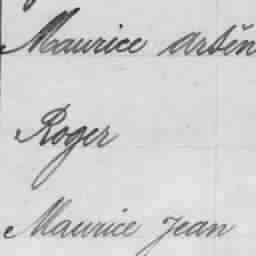 Maurice Arsèn
Roger
Maurice Jean